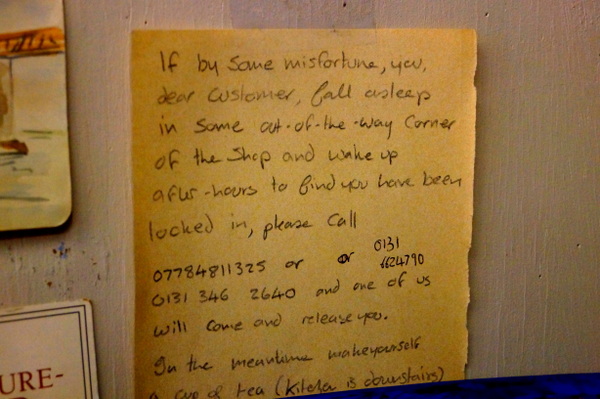 If by some misfortune, you,
dear customer, fall asleep
in some out-of-the-way corner
of the shop and wake up
after-hours to find you have been
locked in, please call
07784811325 or or 0131 6624790
0131 346 2640 and one of us
will come and release you.
In the meantime make yourself
a cup of tea (kitchen is downstairs)
URE-